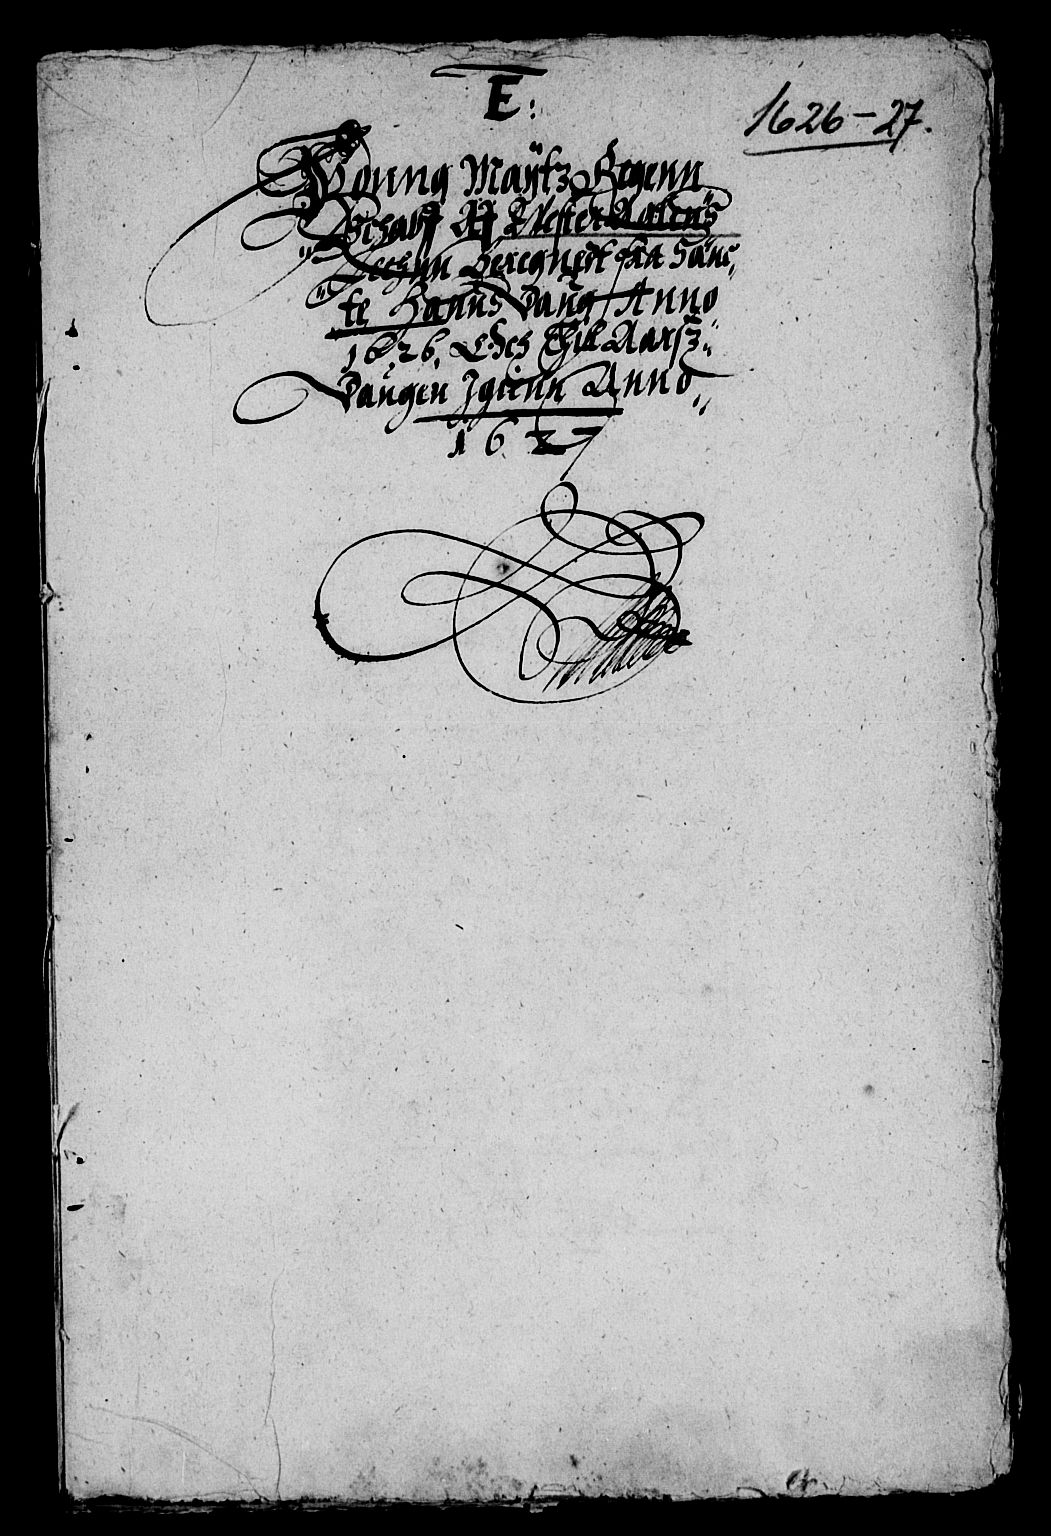 E:
1626-27.
Konng Maÿtz Regenn
schaff Aff Nester Aalens
Lechnn Beregnedt fraa Sanc,
te Hanns Daug Anno
1626. Och Till Aarsz
Daugen Igienn Anno
1627